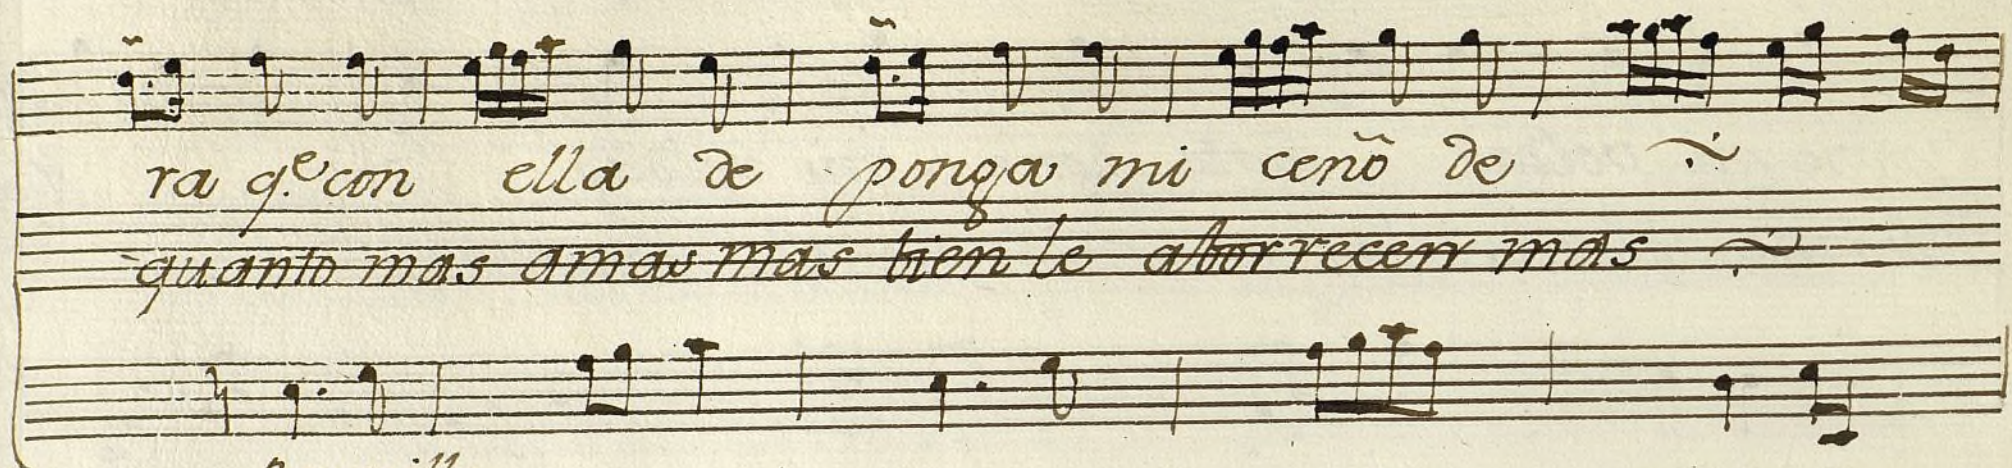 ra q.e con ella de ponga mi cenõ de
quanto mas amas mas bien le aborrecen mas